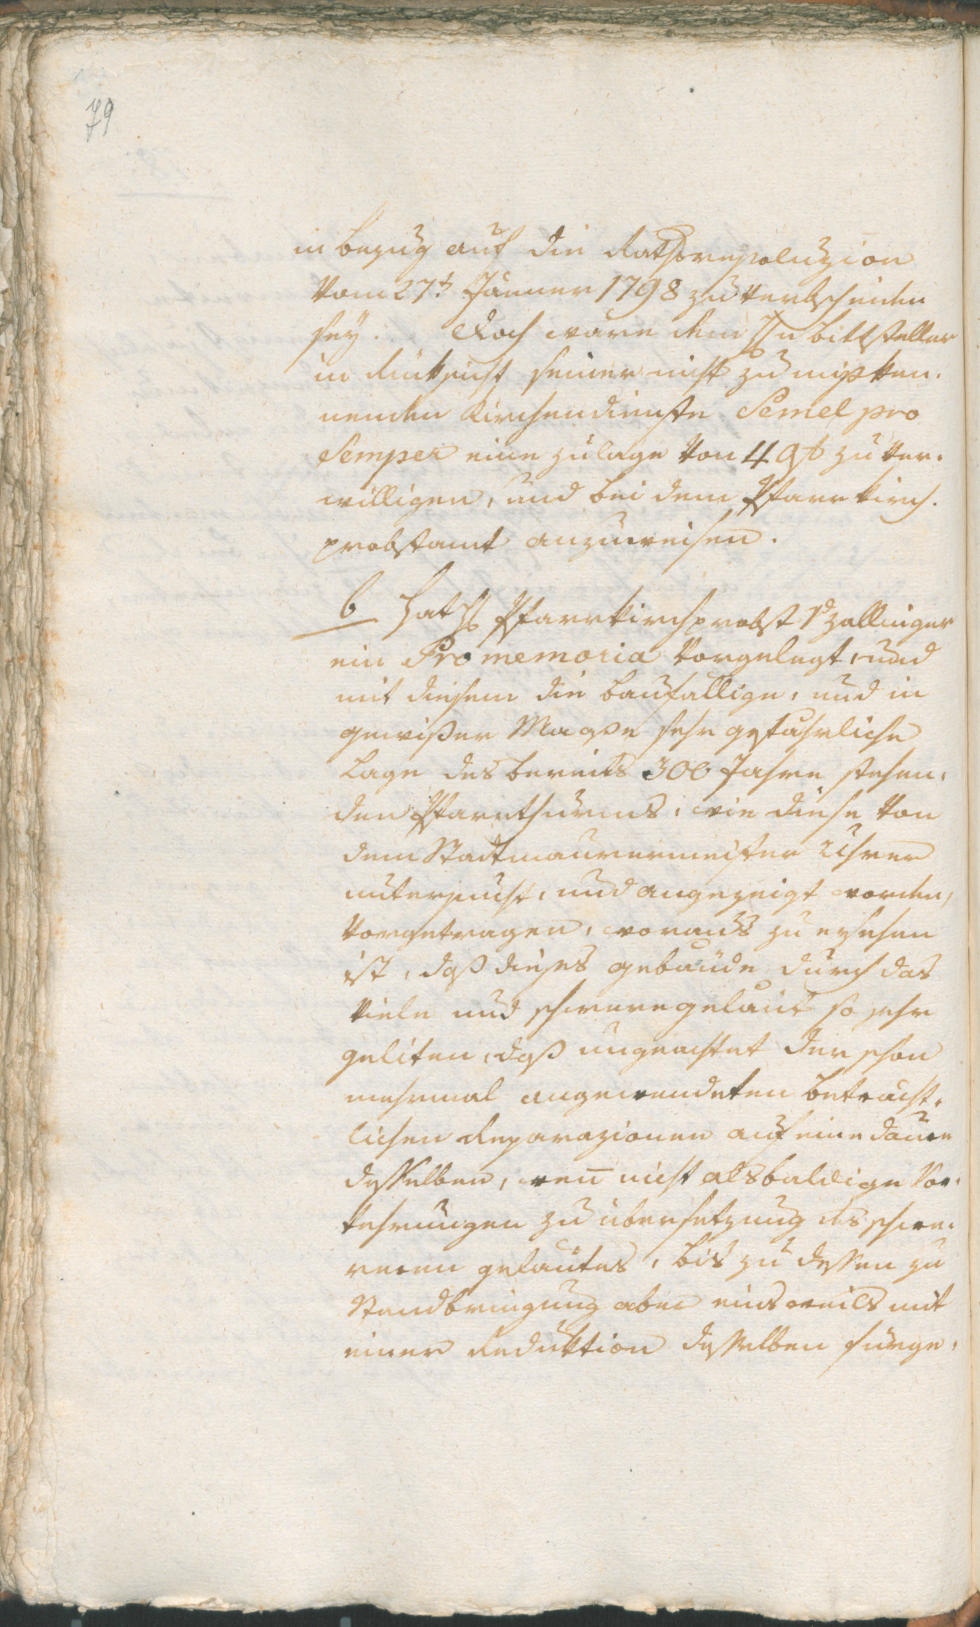 79
in bezug auf die Rathsresoluzion
vom 27t. Jänner 1798 zu verbscheiden
sey. Doch wäre dem Hn bittsteller
in Rüksicht seiner nicht zu mißken-
nenden Kirchendienste Semel pro
Semper eine zulage von 40f zu ver-
willigen, und bei dem Pfarrkirch-
probstamt anzuweisen.
6 Hat H. Pfarrkirchprobst v zallinger
ein Promemoria vorgelegt, und
mit diesem die baufällige, und in
gewißer Maße sehr gefährliche
Lage des bereits 300 Jahre stehen-
den Pfarrthurms, wie diese von
dem Stadtmaurermeister Uhrer
untersucht, und angezeigt worden,
vorgetragen, woraus zu ersehen
ist, daß dieses gebäude durch das
viele und schwere geläut so sehr
geliten, daß ungeachtet der schon
mehrmal angewendeten beträcht-
lichen Reparazionen auf eine dauer
desselben, wen̄ nicht alsbaldige Vor-
kehrungen zu übersetzung des schwe-
reren geläutes, bis zu dessen zu
Standbringung aber einsweils mit
einer Reduktion desselben fürge-